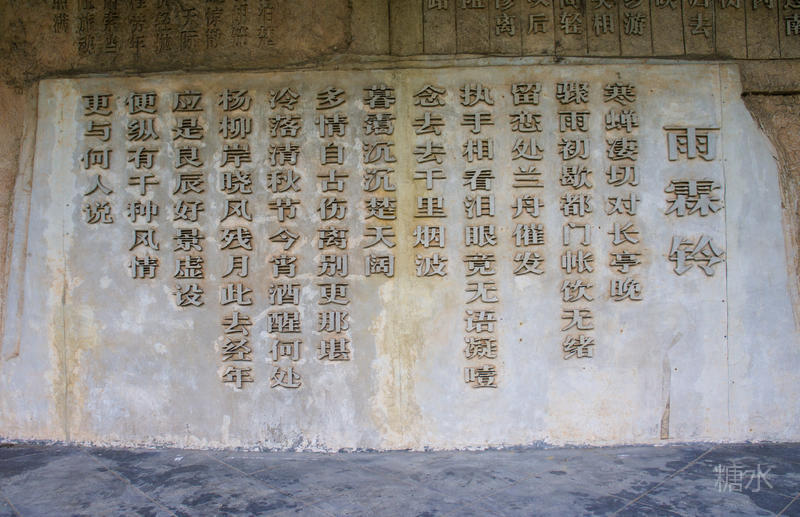 雨霖铃
寒蝉凄切对长亭晚
骤雨初歇都门帐饮无绪
留恋处兰舟催发
执手相看泪眼竞无语凝噎
念去去千里烟波
暮霭沉沉楚天阔
多情自古伤离别更那堪
冷落清秋节今宵酒醒何处
杨柳岸晓风残月此去经年
应是良辰好景虚设
便纵有千种风情
更与何人说
糖水